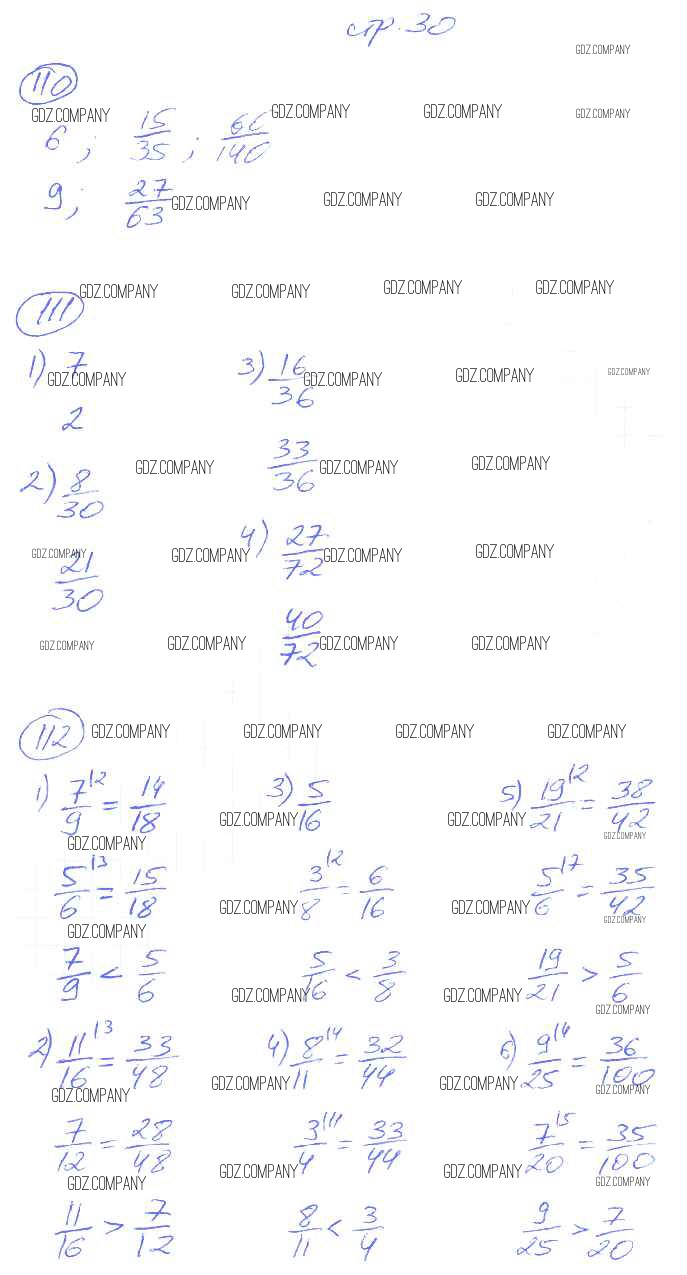 стр. 30
GDZ.COMPANY
110
GDZ.COMPANY GDZ.COMPANY GDZ.COMPANY GDZ.COMPANY
6 ; 15/35 ; 60/140
9; 27/63
GDZ.COMPANY GDZ.COMPANY GDZ.COMPANY
111
GDZ.COMPANY GDZ.COMPANY GDZ.COMPANY GDZ.COMPANY
1) 7 3) 16/36
GDZ.COMPANY GDZ.COMPANY GDZ.COMPANY GDZ.COMPANY
2 33/36
GDZ.COMPANY GDZ.COMPANY GDZ.COMPANY
2) 8/30 4) 27/72
GDZ.COMPANY GDZ.COMPANY GDZ.COMPANY GDZ.COMPANY
21/30 40/72
GDZ.COMPANY GDZ.COMPANY GDZ.COMPANY GDZ.COMPANY
112
GDZ.COMPANY GDZ.COMPANY GDZ.COMPANY GDZ.COMPANY
1) 7/9 |2 = 14/18 3) 5/16 5) 19/21 |2 = 38/42
GDZ.COMPANY GDZ.COMPANY GDZ.COMPANY GDZ.COMPANY
5/6 |3 = 15/18 3/8 |2 = 6/16 5/6 |7 = 35/42
GDZ.COMPANY GDZ.COMPANY GDZ.COMPANY GDZ.COMPANY
7/9 < 5/6 5/16 < 3/8 19/21 > 5/6
GDZ.COMPANY GDZ.COMPANY GDZ.COMPANY
2) 11/16 |3 = 33/48 4) 8/11 |4 = 32/44 6) 9/25 |4 = 36/100
GDZ.COMPANY GDZ.COMPANY GDZ.COMPANY GDZ.COMPANY
7/12 = 28/48 3/4 |11 = 33/44 7/20 |5 = 35/100
GDZ.COMPANY GDZ.COMPANY GDZ.COMPANY GDZ.COMPANY
11/16 > 7/12 8/11 < 3/4 9/25 > 7/20